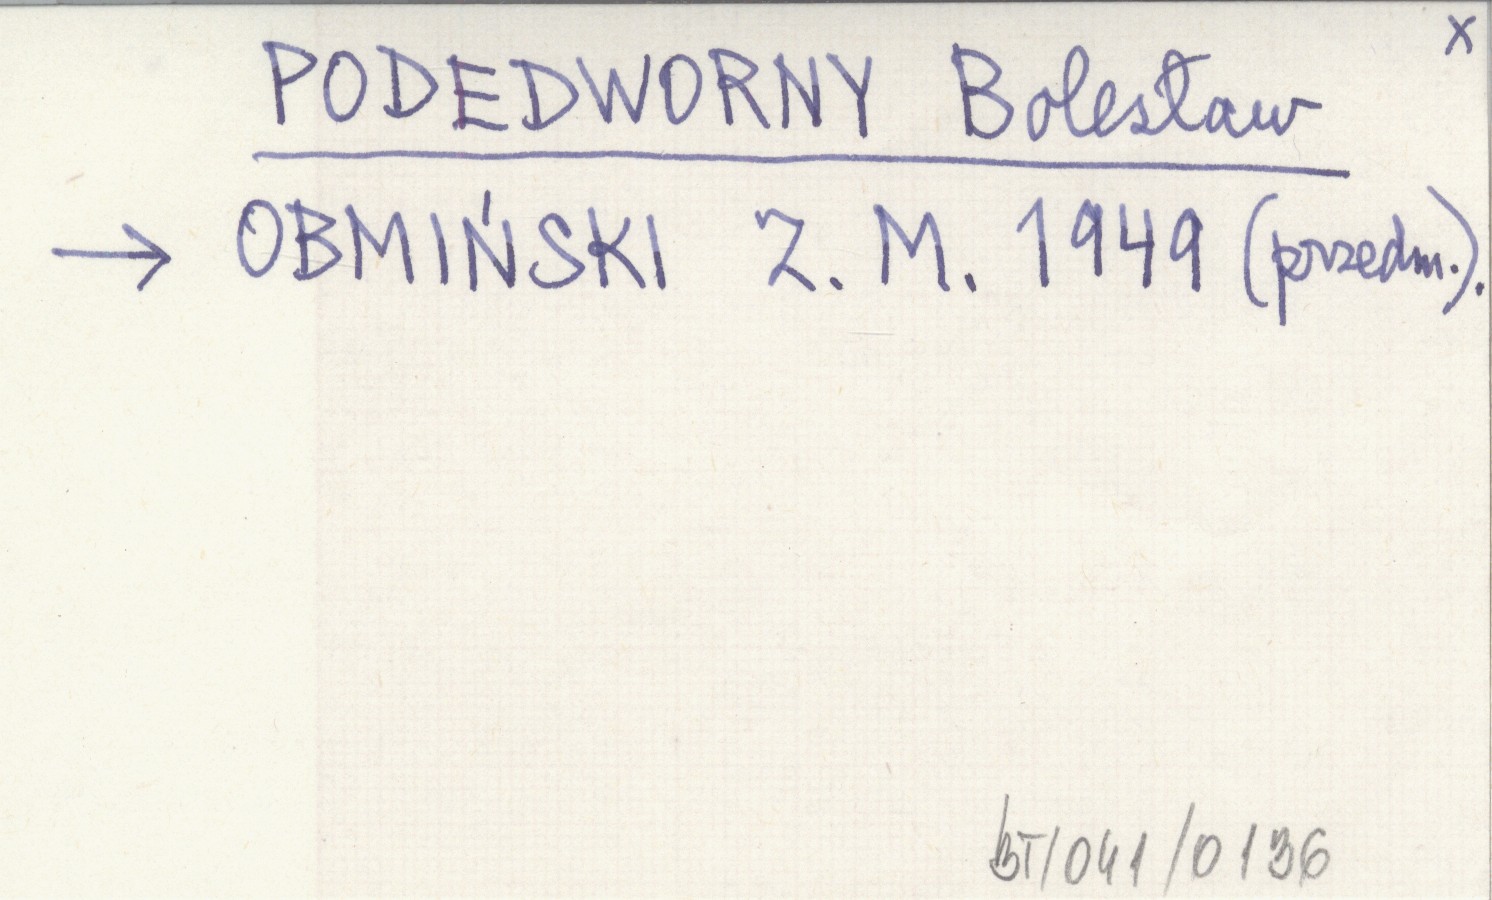 x
PODEDWORNY Bolesław
→ OBMIŃSKI Z. M. 1949 (przedm.).
BT/041/0136